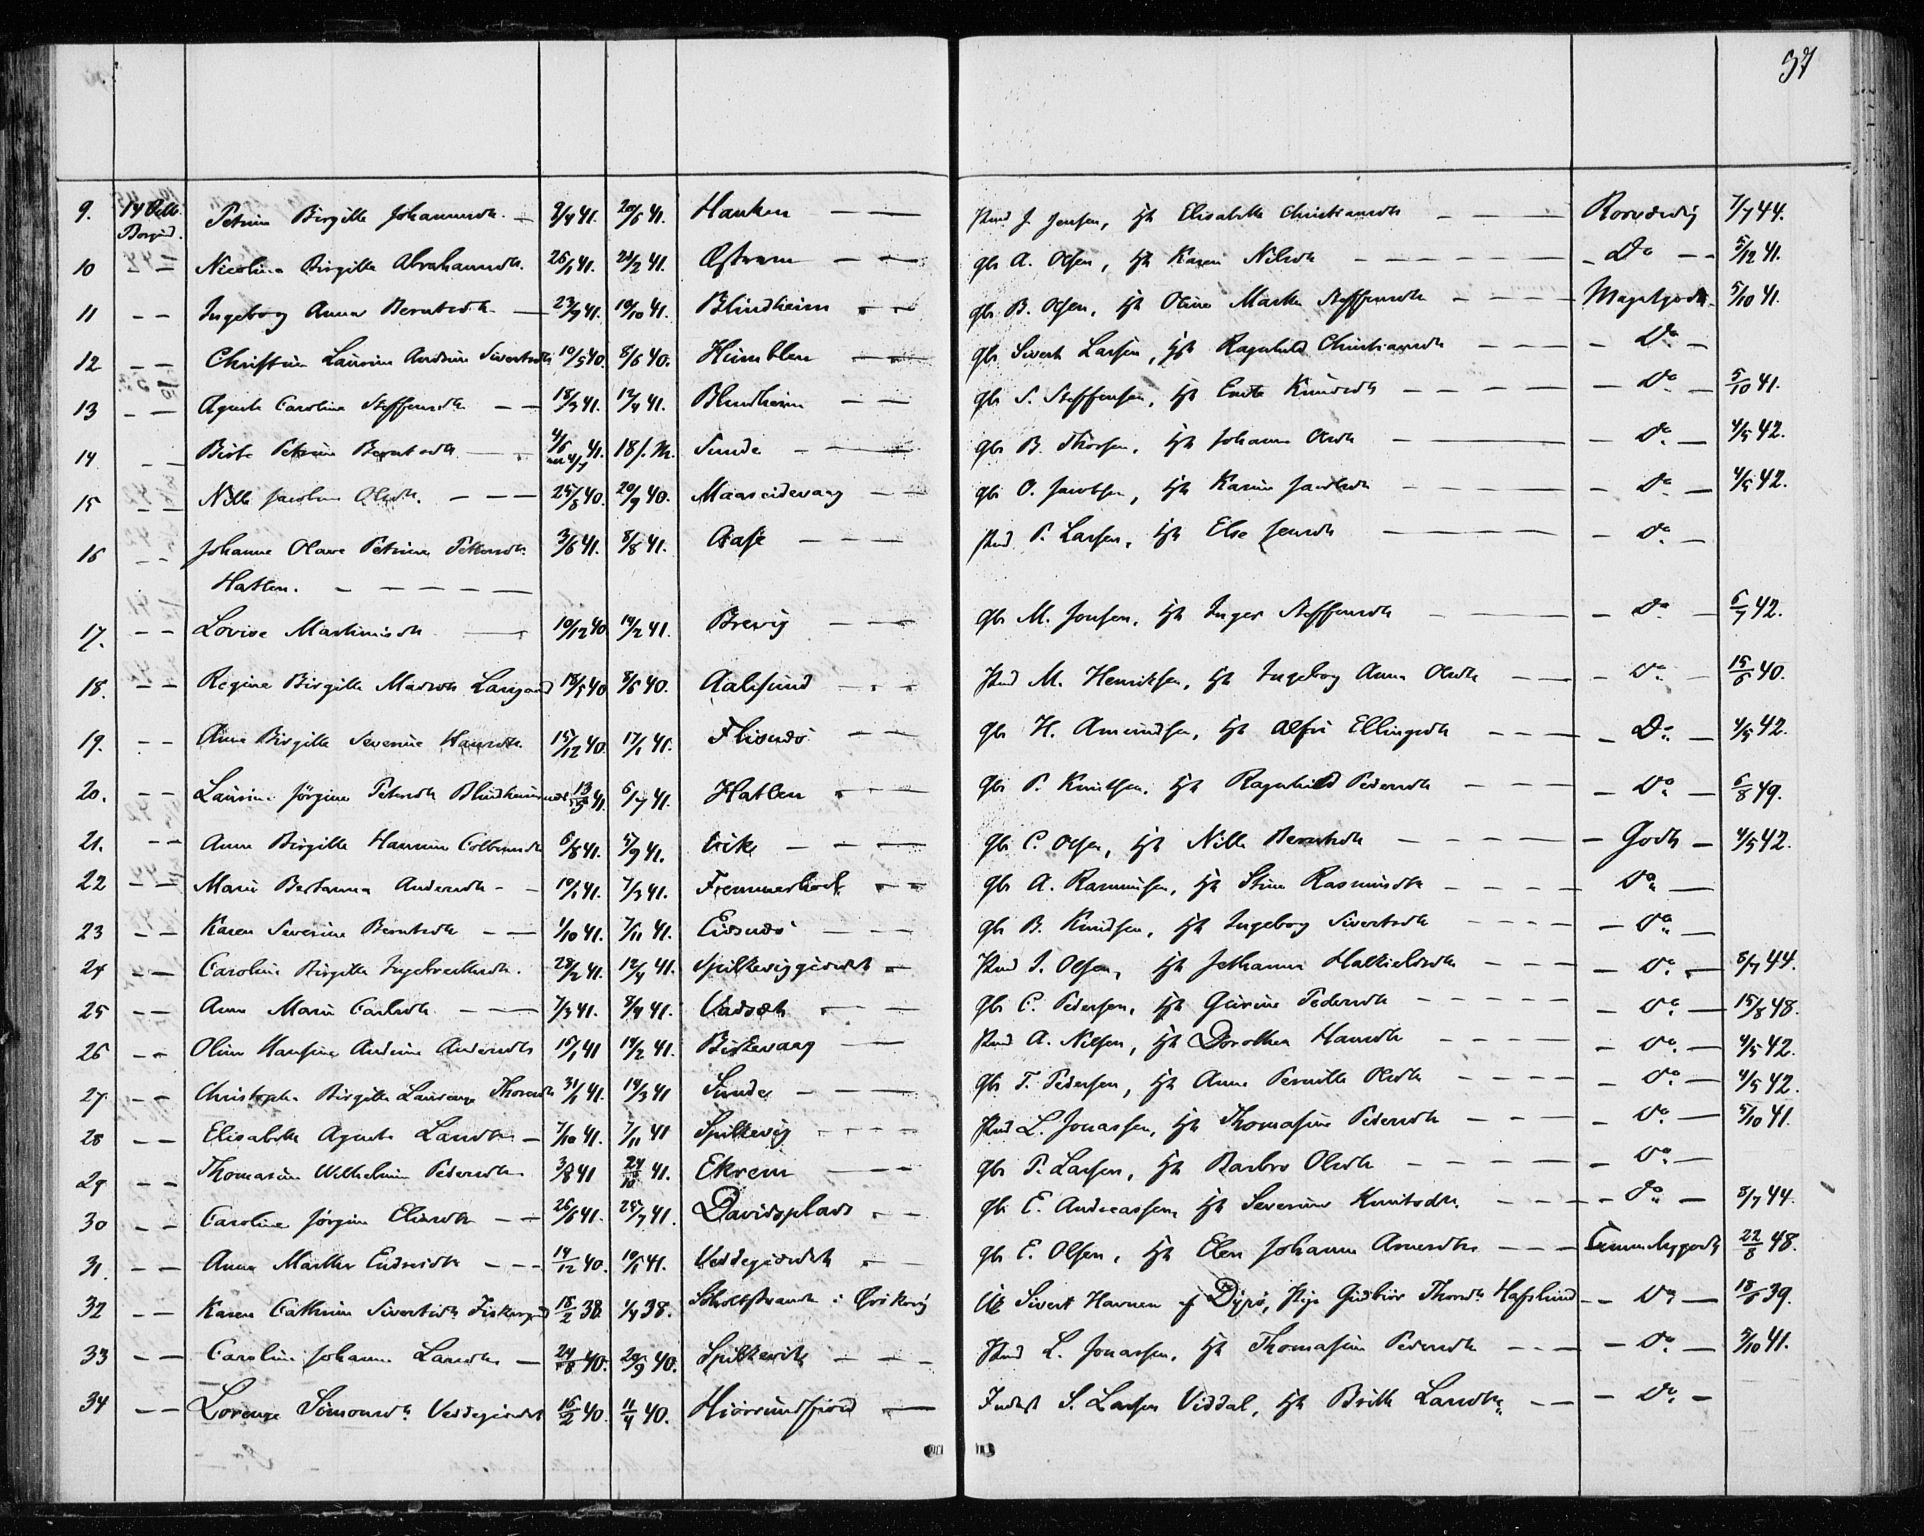 37
9. 14 Octb. Borgund. Petrine Birgitte Johannesdtr. — 9/4 41. 20/5 41. Hanken — — Hmd J. Jensen, Hst Elisabeth Christiansdtr — — — Rorvedvig 7/7 44.
10 — Nicoline Birgitte Abrahamsdtr. 26/1 41. 21/2 41. Østrem — — gbr A. Olsen, Hst Karen Nilsdtr — — — Do — 5/12 41.
11 — — Ingeborg Anna Berntsdtr — 23/7 41. 10/10 41. Blindheim — — gbr B. Olsen, Hst Oline Marthe Steffensdtr — — — 5/10 41.
12 — — Christine Laurine Andrine Sivertsdtr 10/5 40. 8/6 40. Humblen — gbr Sivert Larsen, Hst Ragnhild Christiansdtr — — — Do —
13 — — Agnete Caroline Steffensdtr — — 18/3 41. 12/4 41. Blindheim — — gbr S. Steffensen, Hst Knudsdtr — — — Do 5/10 41.
14 — — Petrine Berntsdtr — 4/6 41. Sunde — — gbr B. Thorsen, Hst Johanne Olsdtr — — — Do — 4/5 42.
15 — — Nille Jacobine Olsdtr. — — — 25/8 40. 20/9 40. Maaseidevaag — — gbr O. Jacobsen, Hst Karine Jacobsdtr — — — Do — 4/5 42.
16 — — Johanne Olave Petrine Pettersdtr 3/6 41. 8/8 41. Aase — — — Hmd P. Larsen, Hst Else Jensdtr — — — Do —
Hatlen. — — — — —
17. — — Lovise Martinusdtr — 10/12 40 14/2 41. Brevig — — gbr M. Jonsen, Hst Inger Steffensdtr — — — Do — 6/7 42.
18. — — Regine Birgitte Madsdtr Langsand 18/5 40 8/6 40. Aalesund — — Hmd M. Henriksen, Hst Ingeborg Anna Olsdtr — — — Do — 15/6 40.
19. — — Anne Birgitte Severine Hansdtr 15/12 40. 17/1 41. Flisnæs — — gbr H. Amundsen, Hst Ellingsdtr — — — Do — 4/5 42.
20. — — Laurine Jørgine Petersdtr Blindheimsnes 13/5 41. 6/7 41. Hatlen — — gbr P. Knutsen, Hst Ragnhild Pedersdtr — — — Do — 6/8 49.
21. — — Anne Birgitte Hannine Colbensdtr 6/8 41. 5/9 41. — — — gbr C. Olsen, Hst Nille Berntsdtr — — — Godts — 4/5 42.
22 — — Marie Bertanna Andersdtr — — 10/1 41. 7/3 41. Fremmerholt — — gbr A. Rasmusen, Hst Stine Rasmusdtr — — — Do —
23 — — Karen Severine Berntsdtr — — 1/10 41. 7/11 41. Eidsnæs — — — gbr B. Knudsen, Hst Ingeborg Sivertsdtr — — — Do —
24 — — Caroline Birgitte Ingebrechtsdtr. 28/2 41. 12/4 41. Spilkeviggierdet — Hmd I. Olsen, Hst Johanna — — — Do — 8/7 44.
25 — — Anne Marie Carlsdtr. — — 7/3 41. 8/4 41. Vadsæth — — gbr C. Pedersen, Hst Gurine Pedersdtr — — — Do — 15/8 48.
26 — — Oline Hansine Andrine Andersdtr 16/1 41 14/2 41. Biskevaag — Hmd A. Nilsen, Hst Dorothea Hansdtr — — — Do — 4/5 42.
27 — — Christophe Birgitte Laurenze Thorsdtr 31/1 41. 14/3 41 Sunde — — — gbr T. Pedersen, Hst Anne Pernille Olsdtr — — — Do — 4/5 42.
28 — — Elisabeth Agnete Larsdtr — 7/10 41. 7/11 41 Spilkevig — — — Hmd L. Jonassen, Hst Thomasine Pedersdtr — — — Do — 5/10 41.
29 — — Thomasine Wilhelmine Pedersdtr 3/8 41 24/10 41. Ekrem — — — gbr P. Larsen, Hst Barbro Olsdtr — — — Do —
30 — — Caroline Jørgine Eliasdtr — — 26/6 41. 25/7 41. Davidsplads — — gbr E. Andreassen, Hst Severine Knutsdtr. — — — Do — 8/7 44.
31. — — Anne Marthe Endresdtr — — — 14/12 40. 10/1 41. Veddegierdet — — gbr E. Olsen, Hst Elen Johanne Arnesdtr — — — 22/8 48.
32 — — Karen Cathrine Sivertsdtr 18/2 38. 1/4 38. Skoltstrande i Ørskoug Sivert Havnen f Dyrø, Pige Thorsdtr Hafslund — — Do — 18/6 39.
33 — — Caroline Johanne Larsdtr — 24/8 40. 20/9 40. Spilkevik — — — Hmd L. Jonassen, Hst Thomasine Pedersdtr — — — Do — 5/10 41.
34 — — Lorenze Simonsdtr Veddegierdet 16/2 40. 11/4 40. Hiørundfiord — Inderst S. Larsen Viddal, Hst Brith Larsdtr — — — Do —